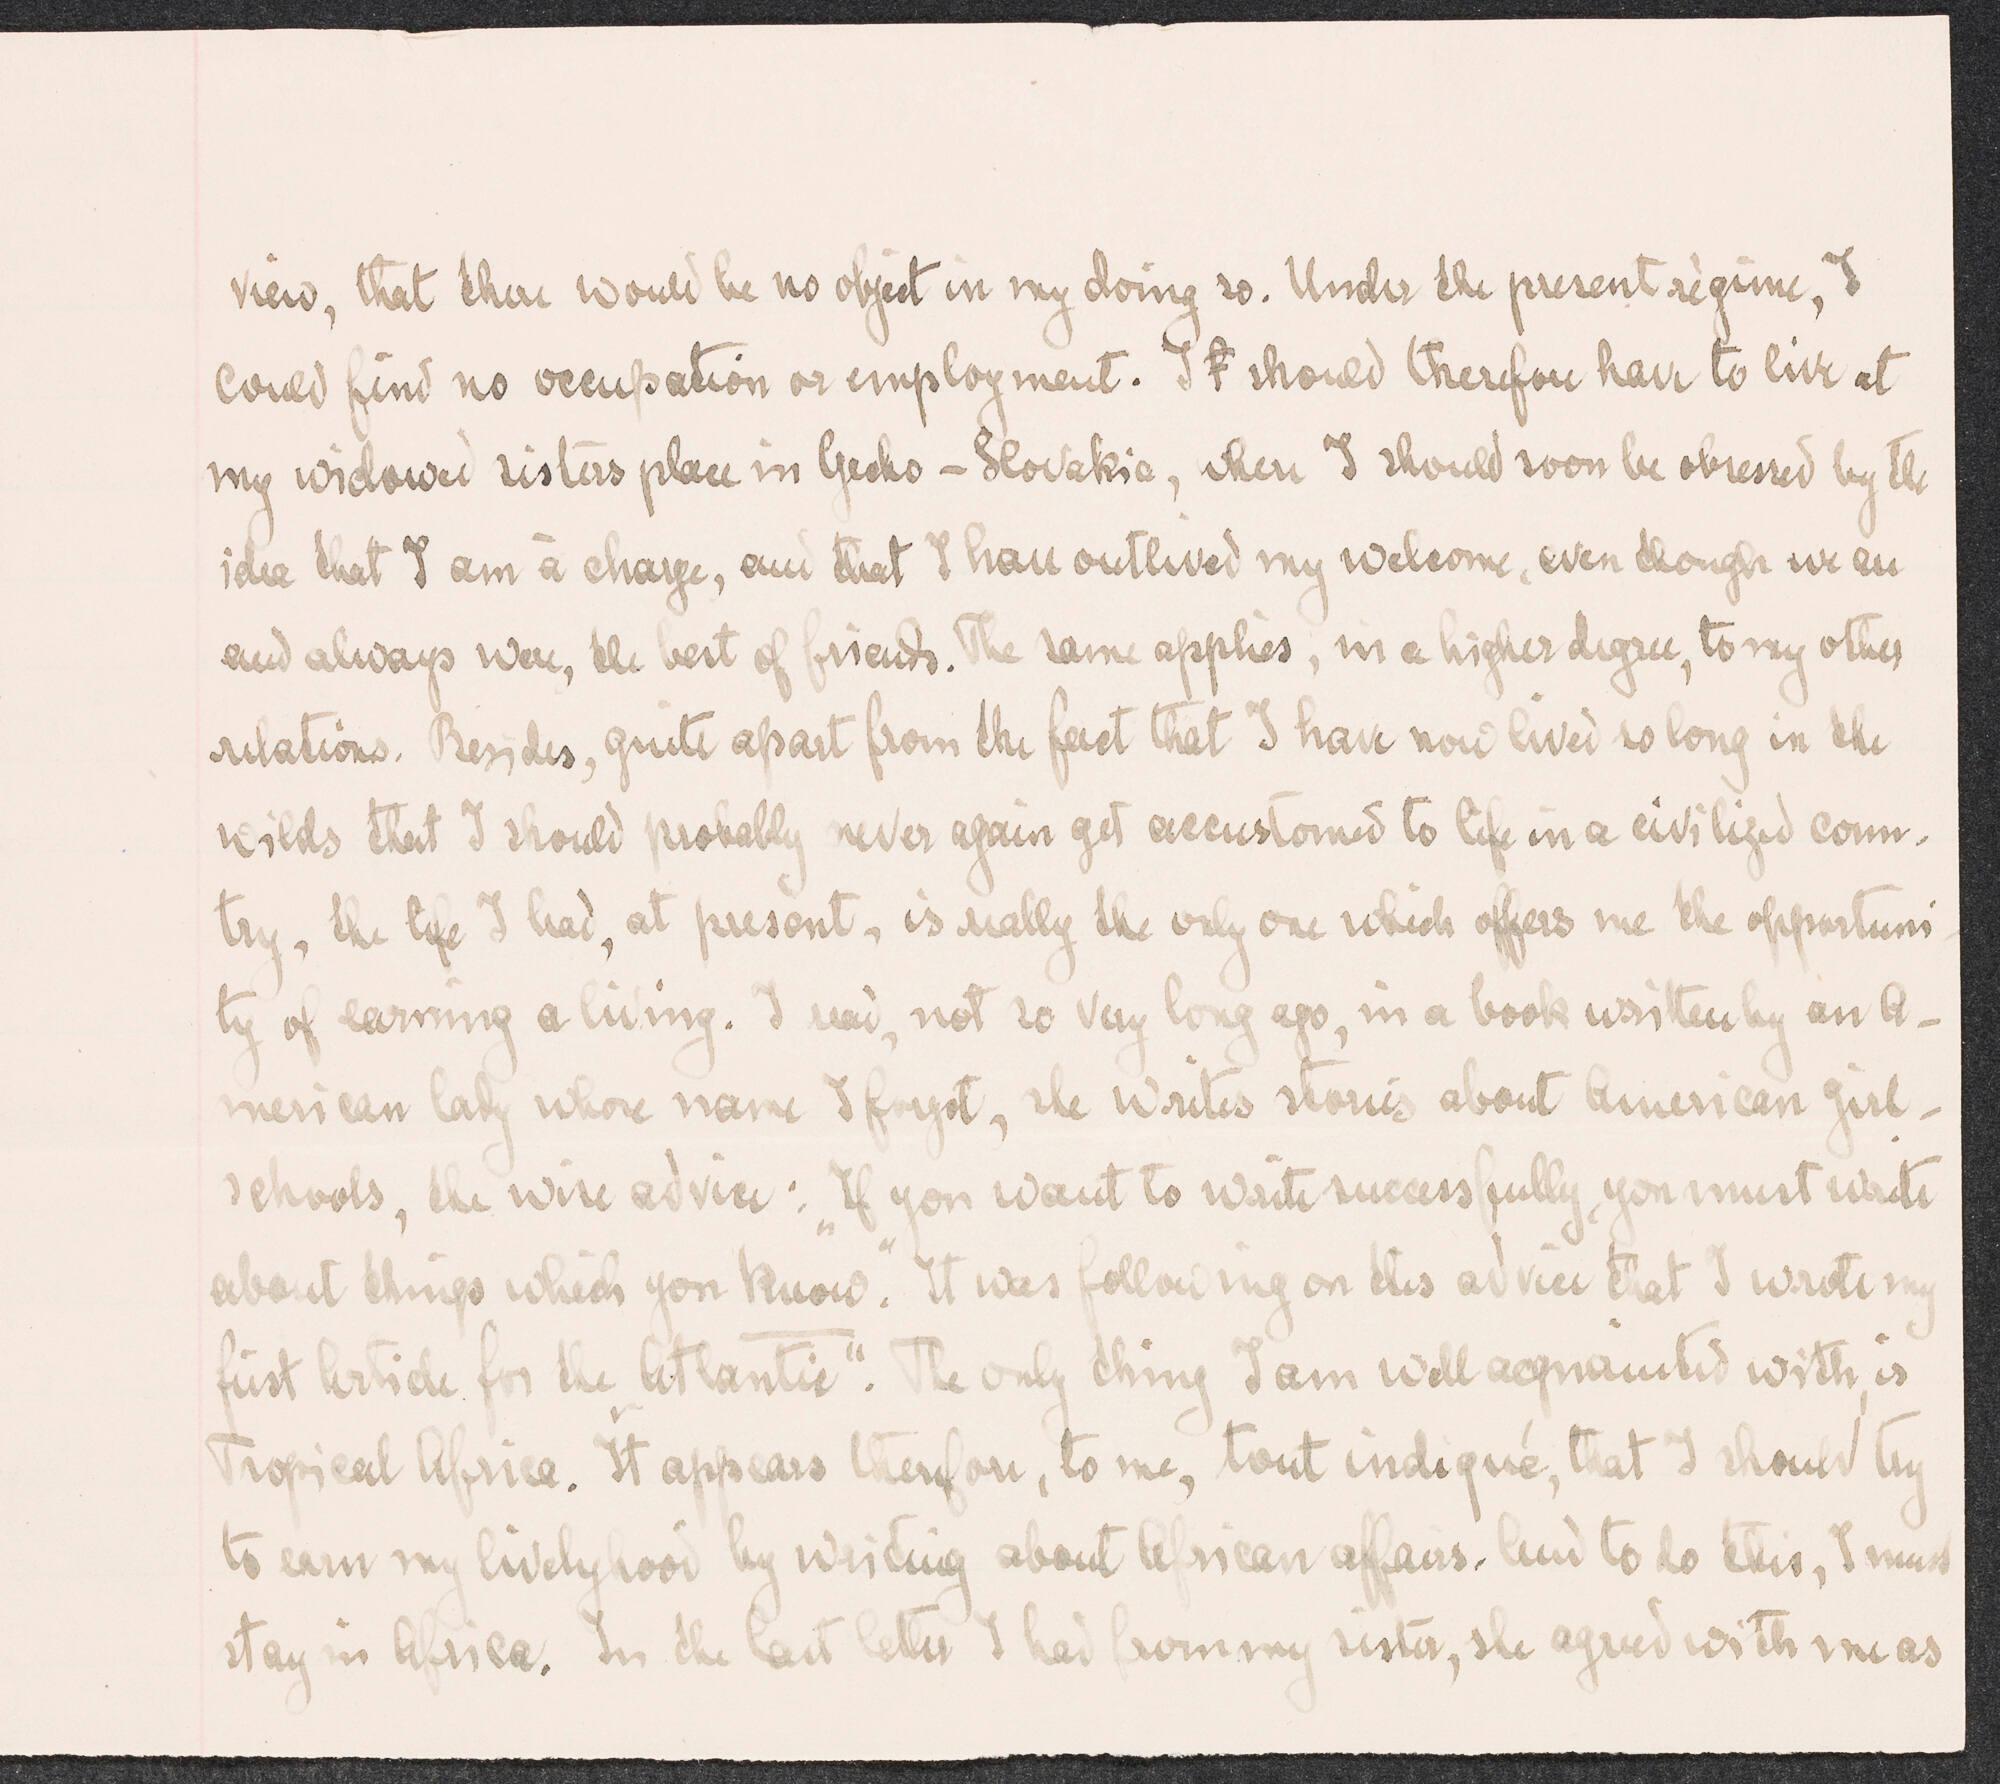 view, that there would be no object in my doing so. Under the present régime, I
could find no occupation or employment. I should therefore have to live at
my widowed sisters place in Czecho-Slovakia, where I should soon be obsessed by the
idea that I am à charge, and that I have outlived my welcome, even though we are
and always were, the best of friends. The same applies, in a higher degree, to my other
relations. Besides, quite apart from the fact that I have now lived so long in the
wilds that I should probably never again get accustomed to life in a civilized coun-
try, the life I lead, at present, is really the only one which offers me the opportuni-
ty of earning a living. I read, not so very long ago, in a book written by an A-
merican lady whose name I forgot, she writes stories about American girl-
schools, the wise advice: „If you want to write successfully, you must write
about things which you know." It was following on this advice that I wrote my
first Article for the „Atlantic". The only thing I am well acquainted with, is
Tropical Africa. It appears therefore, to me, tout indiqué, that I should try
to earn my livelyhood by writing about African affairs. And to do this, I must
stay in Africa. In the last letter I had from my sister, she agreed with me as